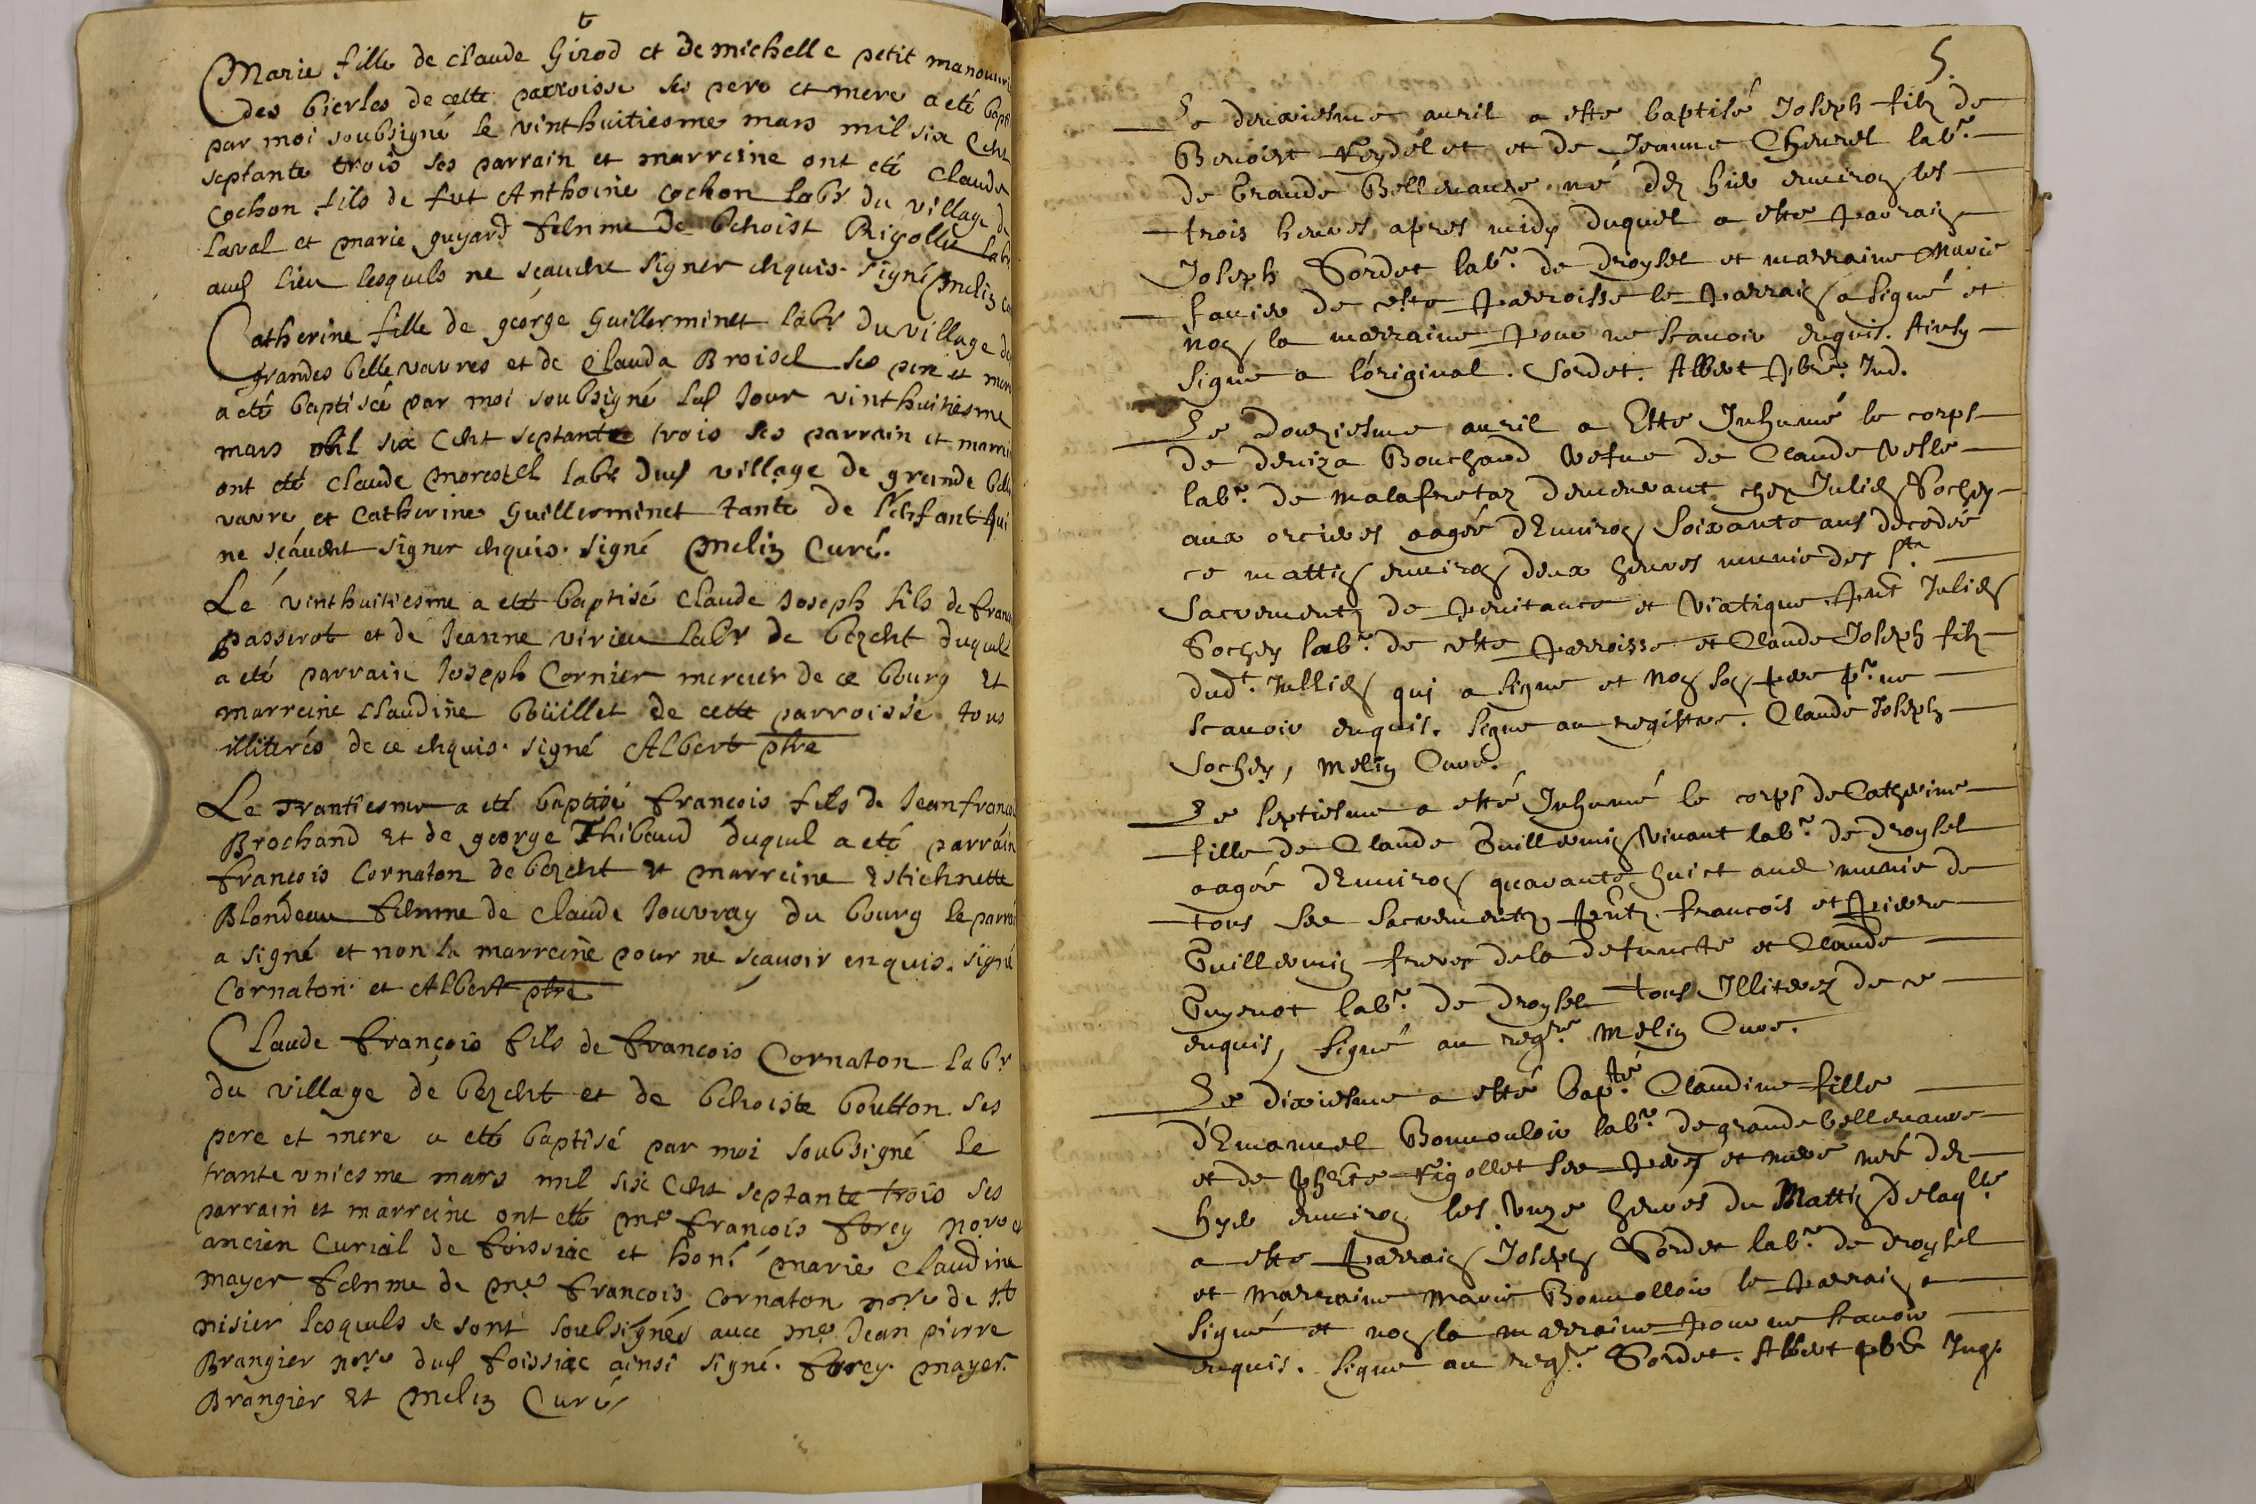 Marie fille de claude Girod et de michelle petit
des bierles de cette parroisse ses pere et mere a eté
par moi soubsigné le vinthuitiesme mars mil six Cent
septante trois ses parrain et marreine ont eté Claude
Cochon fils de fut Anthoine cochon labr du village de
laval et marie guyard femme de benoist Rigollet labr
aud lieu lesquels ne sçauent signer enquis. signé Melin
Catherine fille de george Guillerminet labr du village de
grandes bellevavres et de Clauda Broisel ses pere et
a eté baptisée par moi soubsigné led Jour vinthuitiesme
mars mil six Cent septante trois ses parrain et
ont eté claude morestel labr dud village de grande
vavre et Catherine Guillerminet tante de l'enfant qui
ne sçauent signer enquis. signé Melin Curé.
Le vinthuitiesme a eté baptisé Claude Joseph fils de
passerot et de Jeanne virieu labr de bezent duquel
a eté parrain Joseph Cornier mercier de ce bourg et
marreine Claudine boüillet de cette parroisse tous
illiterés de ce enquis. signé Albert ptre
Le Trantiesme a eté baptisé francois fils de Jean
Brochand et de george Thibaud duquel a eté parrain
francois Cornaton de bezent et marreine Estiennette
Blondeau femme de claude Jouvray du bourg le
a signé et non la marreine pour ne sçauoir enquis. signé
Cornaton et Albert ptre
Claude françois fils de francois Cornaton labr
du village de bezent et de benoiste boutton ses
pere et mere a eté baptisé par moi soubsigné le
trante vniesme mars mil six Cent septante trois ses
parrain et marreine ont eté me francois forey nore et
ancien Curial de foissiac et hon. marie claudine
mayer femme de me francois Cornaton nore de st
nisier lesquels se sont soubsignés auec me Jean pierre
Brangier nore dud foissiac ainsi signé. forey. mayer.
Brangier et Melin Curé
5.
Le deuxiesme auril a esté baptisé Joseph filz de
Benoist Reydélet et de Jeanne Cheurel labr.
de Grande Belleuaure né dez hier enuiron les
trois heures apres midy duquel a esté parrain
Joseph Sordet labr. de droyset et marraine Marie
fauier de ceste parroisse le parrain a signé et
non la marraine pour ne scauoir enquis. Ainsy
signe a l'original. Sordet. Albert pbre. Ind.
Le douziesme auril a Esté Inhumé le corps
de deniza Bouchard vefue de Claude velle
labr. de malafretaz demeurant chez Julien Sochey
aux orcieres aagée d'Enuiron soixante ans decedée
ce mattin enuiron deux heures munie des sts
Sacrementz de penitance et Viatique pnt Julien
Sochey labr. de ceste parroisse et Claude Joseph filz
dudt. Jullien qui a signe et non son pere pr. ne
scauoir enquis. signe au registre. Claude Joseph
Sochey, Melin Cure.
Le septiesme a esté Inhumé le corps de Catherine
fille de Claude Guillermin viuant labr. de droyset
aagée d'Enuiron quarante huict ans munie de
tous ses sacrementz pntz. francois et pierre
Guillermin freres de la defuncte et Claude
Guyenot labr. de droyset tous Illiterez de ce
enquis, signé au regre Melin Cure.
Le dixiesme a esté bapté. Claudine fille
d'Emanuel Bonuouloir labr. de grande belleuaure
et de phte Rigollet ses pere et mere né dez
hyer enuiron les vnze heures du Mattin delaqlle
a esté parrain Joseph Sordet labr. de droyset
et marraine Marie Bonuolloir le parrain a
signé et non la marraine pour ne scauoir
enquis. signe au regre. Sordet. Albert pbre Ind.